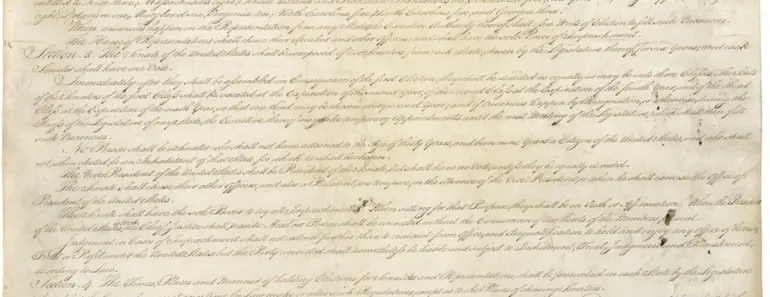 entitled to chuse three, Massachusetts eight, Rhode-Island and Providence Plantations one,
eight, Delaware one, Maryland six, Virginia ten, North Carolina five, South Carolina five, and Georgia three.
When vacancies happen in the Representation from any State, the Executive Authority thereof shall issue Writs of Election to fill such Vacancies.
The House of Representatives shall chuse their Speaker and other Officers; and shall have the sole Power of Impeachment.
Section. 3. The Senate of the United States shall be composed of two Senators from each State, chosen by the Legislature thereof, for six Years; and each
Senator shall have one Vote.
Immediately after they shall be assembled in Consequence of the first Election, they shall be divided as equally as may be into three Classes. The Seats
of the Senators of the first Class shall be vacated at the Expiration of the second Year, of the second Class at the Expiration of the fourth Year, and of the third
Class at the Expiration of the sixth Year, so that one third may be chosen every second Year; and if Vacancies happen by Resignation, or otherwise, during the
Recess of the Legislature of any State, the Executive thereof may make temporary Appointments until the next Meeting of the Legislature, which shall then fill
such Vacancies.
No Person shall be a Senator who shall not have attained to the Age of thirty Years, and been nine Years a Citizen of the United States, and who shall
not, when elected, be an Inhabitant of that State for which he shall be chosen.
The Vice President of the United States shall be President of the Senate, but shall have no Vote, unless they be equally divided.
The Senate shall chuse their other Officers, and also a President pro tempore, in the Absence of the Vice President, or when he shall exercise the Office of
President of the United States.
The Senate shall have the sole Power to try all Impeachments. When sitting for that Purpose, they shall be on Oath or Affirmation. When the President
of the United States is tried, the Chief Justice shall preside: And no Person shall be convicted without the Concurrence of two thirds of the Members present.
Judgment in Cases of Impeachment shall not extend further than to removal from Office, and disqualification to hold and enjoy any Office of honor,
Trust or Profit under the United States: but the Party convicted shall nevertheless be liable and subject to Indictment, Trial, Judgment and Punishment,
according to Law.
Section. 4. The Times, Places and Manner of holding Elections for Senators and Representatives, shall be prescribed in each State by the Legislature
thereof; but the Congress may at any time by Law make or alter such Regulations, except as to the Places of chusing Senators.